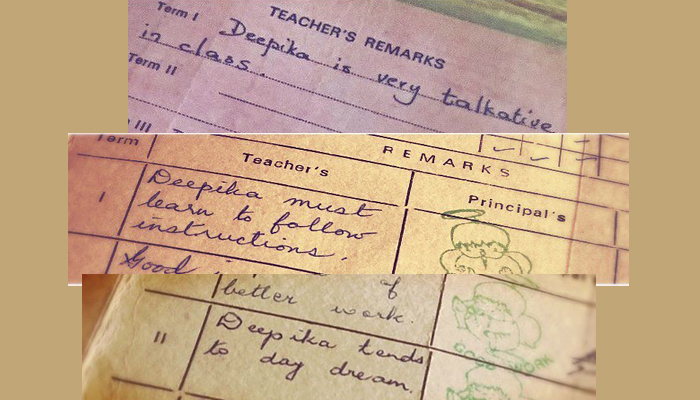 TEACHER'S REMARKS
Term I Deepika is very talkative
in class.
Term II
III
Term
REMARKS
Teacher's
Principal's
I
Deepika must
learn to follow
instructions.
Good
of
better work.
II
Deepika tends
to day dream.
GOOD WORK